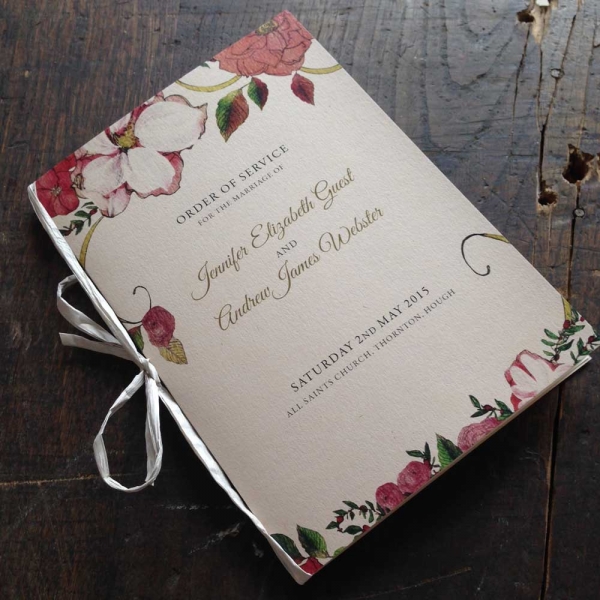 ORDER OF SERVICE
FOR THE MARRIAGE OF
Jennifer Elizabeth Guest
AND
Andrew James Webster
SATURDAY 2ND MAY 2015
ALL SAINTS CHURCH, THORNTON, HOUGH